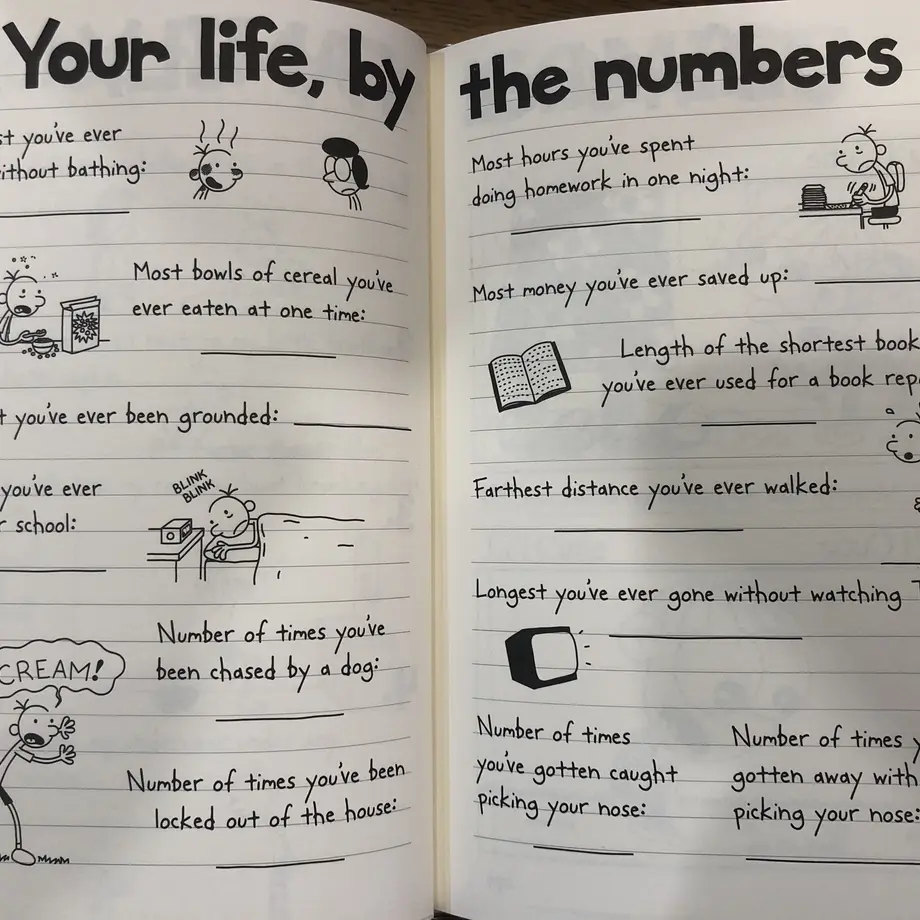 Your life, by
you've ever
bathing:
Most bowls of cereal you've
ever eaten at one time:
you've ever been grounded:
you've ever
school:
BLINK
BLINK
Number of times you've
been chased by a dog:
CREAM!
Number of times you've been
locked out of the house:
the numbers
Most hours you've spent
doing homework in one night:
Most money you've ever saved up:
Length of the shortest book
you've ever used for a book
Farthest distance you've ever walked:
Longest you've ever gone without watching
Number of times
you've gotten caught
picking your nose:
Number of times
gotten away with
picking your nose: